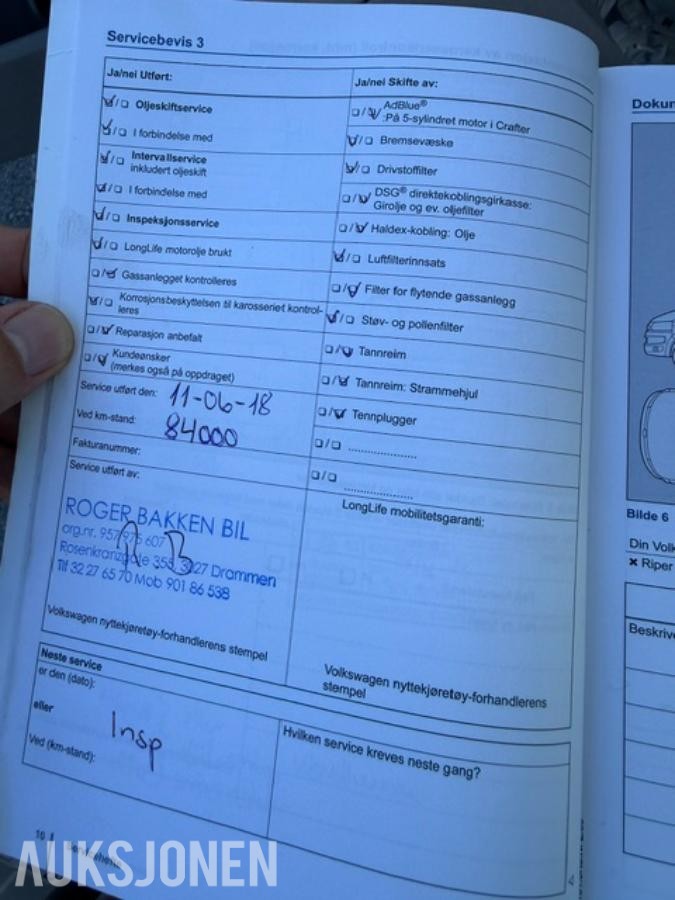 Servicebevis 3
Ja/nei Utført:
Oljeskiftservice
I forbindelse med
Intervallservice
inkludert oljeskift
I forbindelse med
Inspeksjonsservice
LongLife motorolje brukt
Gassanlegget kontrolleres
Korrosjonsbeskyttelsen til karosseriet kontrol-
leres
Reparasjon anbefalt
Kundeønsker
(merkes også på oppdraget)
Service utført den: 11-06-18
Ved km-stand: 84000
Fakturanummer:
Service utført av:
ROGER BAKKEN BIL
org.nr. 957 975 607
Rosenkranzgate 353, 3027 Drammen
Tlf 32 27 65 70 Mob 901 86 538
Volkswagen nyttekjøretøy-forhandlerens stempel
Ja/nei Skifte av:
AdBlue®
:På 5-sylindret motor i Crafter
Bremsevæske
Drivstoffilter
DSG® direktekoblingsgirkasse:
Girolje og ev. oljefilter
Haldex-kobling: Olje
Luftfilterinnsats
Filter for flytende gassanlegg
Støv- og pollenfilter
Tannreim
Tannreim: Strammehjul
Tennplugger
LongLife mobilitetsgaranti:
Volkswagen nyttekjøretøy-forhandlerens
stempel
Neste service
er den (dato):
eller
Insp
Ved (km-stand):
Hvilken service kreves neste gang?
10
AUKSJONEN
Dokum
Bilde 6
Din Volk
× Riper
Beskrive